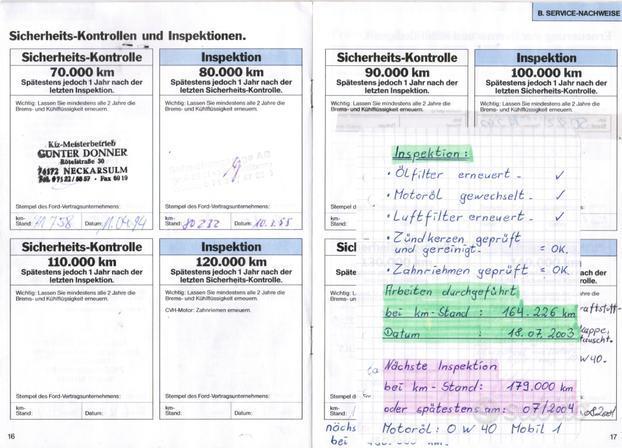 B. SERVICE-NACHWEISE
Sicherheits-Kontrollen und Inspektionen.
Sicherheits-Kontrolle
70.000 km
Spätestens jedoch 1 Jahr nach der
letzten Inspektion.
Wichtig: Lassen Sie mindestens alle 2 Jahre die
Brems- und Kühlflüssigkeit erneuern.
Kfz-Meisterbetrieb
GÜNTER DONNER
Rötelstraße 30
74172 NECKARSULM
Stempel des Ford-Vertragsunternehmens:
km-
Stand:
Datum: 11.04.94
Inspektion
80.000 km
Spätestens jedoch 1 Jahr nach der
letzten Sicherheits-Kontrolle.
Wichtig: Lassen Sie mindestens alle 2 Jahre die
Brems- und Kühlflüssigkeit erneuern.
km-
Stand: 80232
Datum:
Sicherheits-Kontrolle
110.000 km
Spätestens jedoch 1 Jahr nach der
letzten Inspektion.
Wichtig: Lassen Sie mindestens alle 2 Jahre die
Brems- und Kühlflüssigkeit erneuern.
Stempel des Ford-Vertragsunternehmens:
km-
Stand:
Datum:
Inspektion
120.000 km
Spätestens jedoch 1 Jahr nach der
letzten Sicherheits-Kontrolle.
Wichtig: Lassen Sie mindestens alle 2 Jahre die
Brems- und Kühlflüssigkeit erneuern.
CVH-Motor: Zahnriemen erneuern.
Stempel des Ford-Vertragsunternehmens:
km-
Stand:
Datum:
16
Sicherheits-Kontrolle
90.000 km
Spätestens jedoch 1 Jahr nach der
letzten Inspektion.
Wichtig: Lassen Sie mindestens alle 2 Jahre die
Brems- und Kühlflüssigkeit erneuern.
Inspektion
100.000 km
Spätestens jedoch 1 Jahr nach der
letzten Sicherheits-Kontrolle.
Wichtig: Lassen Sie mindestens alle 2 Jahre die
Brems- und Kühlflüssigkeit erneuern.
Inspektion:
• Ölfilter erneuert - ✓
• Motoröl gewechselt - ✓
• Luftfilter erneuert - ✓
• Zündkerzen geprüft
und gereinigt. = OK.
• Zahnriemen geprüft = OK.
Arbeiten durchgeführt
bei km-Stand: 164.226 km
Datum: 18.07.2003
Nächste Inspektion
bei km-Stand: 179.000 km
oder spätestens am: 07/2004
Motoröl: 0 W 40 Mobil 1
Stempel d
km-
Stand:
nächs
bei
17